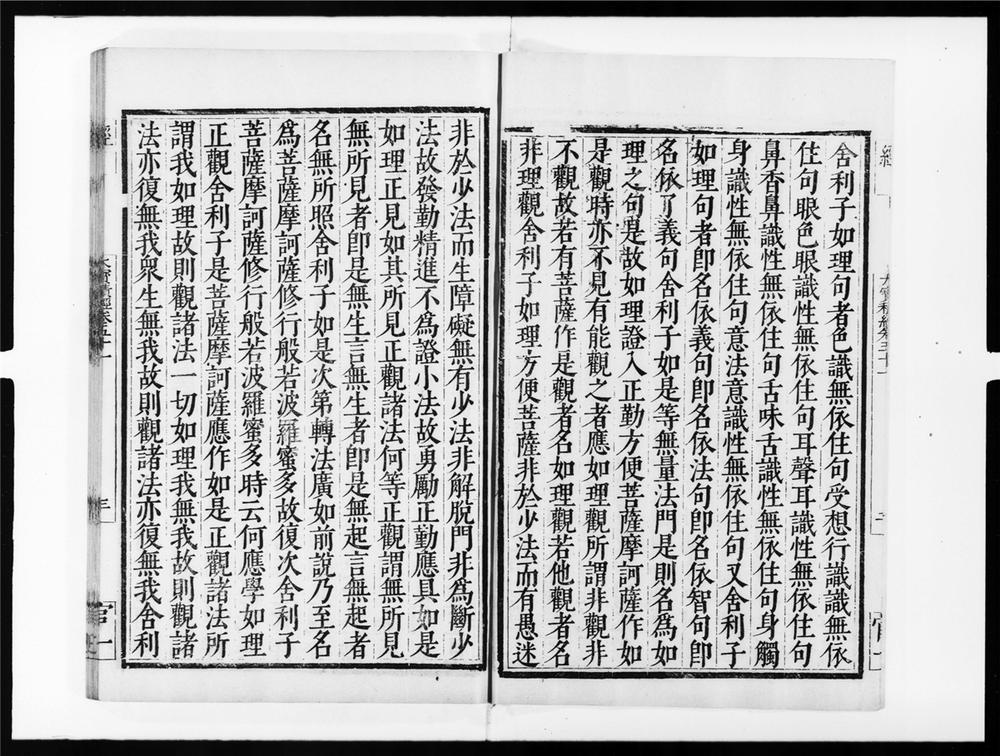 舍利子如理句者色識無依住句受想行識識無依
住句眼色眼識性無依住句耳聲耳識性無依住句
鼻香鼻識性無依住句舌味舌識性無依住句身觸
身識性無依住句意法意識性無依住句又舍利子
如理句者卽名依義句卽名依法句卽名依智句卽
名依了義句舍利子如是等無量法門是則名為如
理之句是故如理證入正勤方便菩薩摩訶薩作如
是觀時亦不見有能觀之者應如理觀所謂非觀非
不觀故若有菩薩作是觀者名如理觀若他觀者名
非理觀舍利子如理方便菩薩非於少法而有愚迷
非於少法而生障礙無有少法非解脫門非為斷少
法故發勤精進不為證小法故勇勵正勤應具如是
如理正見如其所見正觀諸法何等正觀謂無所見
無所見者卽是無生言無生者卽是無起言無起者
名無所照舍利子如是次第轉法廣如前說乃至名
為菩薩摩訶薩修行般若波羅蜜多故復次舍利子
菩薩摩訶薩修行般若波羅蜜多時云何應學如理
正觀舍利子是菩薩摩訶薩應作如是正觀諸法所
謂我如理故則觀諸法一切如理我無我故則觀諸
法亦復無我衆生無我故則觀諸法亦復無我舍利